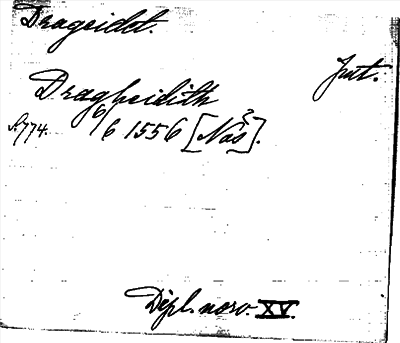 Drageidet.
Jut.
Dragheidith
S.774. 6/6 1556 [Nos?].
Dipl. norv. XV.